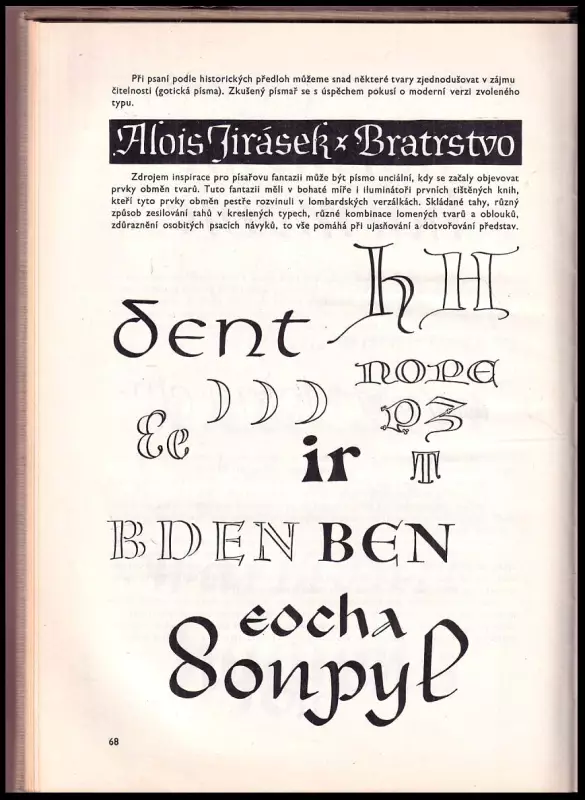 Při psaní podle historických předloh můžeme snad některé tvary zjednodušovat v zájmu
čitelnosti (gotická písma). Zkušený písmař se s úspěchem pokusí o moderní verzi zvoleného
typu.
Alois Jirásek × Bratrstvo
Zdrojem inspirace pro písařovu fantazii může být písmo unciální, kdy se začaly objevovat
prvky obměn tvarů. Tuto fantazii měli v bohaté míře i iluminátoři prvních tištěných knih,
kteří tyto prvky obměn pestře rozvinuli v lombardských verzálkách. Skládané tahy, různý
způsob zesilování tahů v kreslených typech, různé kombinace lomených tvarů a oblouků,
zdůraznění osobitých psacích návyků, to vše pomáhá při ujasňování a dotvořování představ.
h H
dent
nope
Ee
)))
PZ
ir
T
BDEN BEN
eocha
donpyl
68